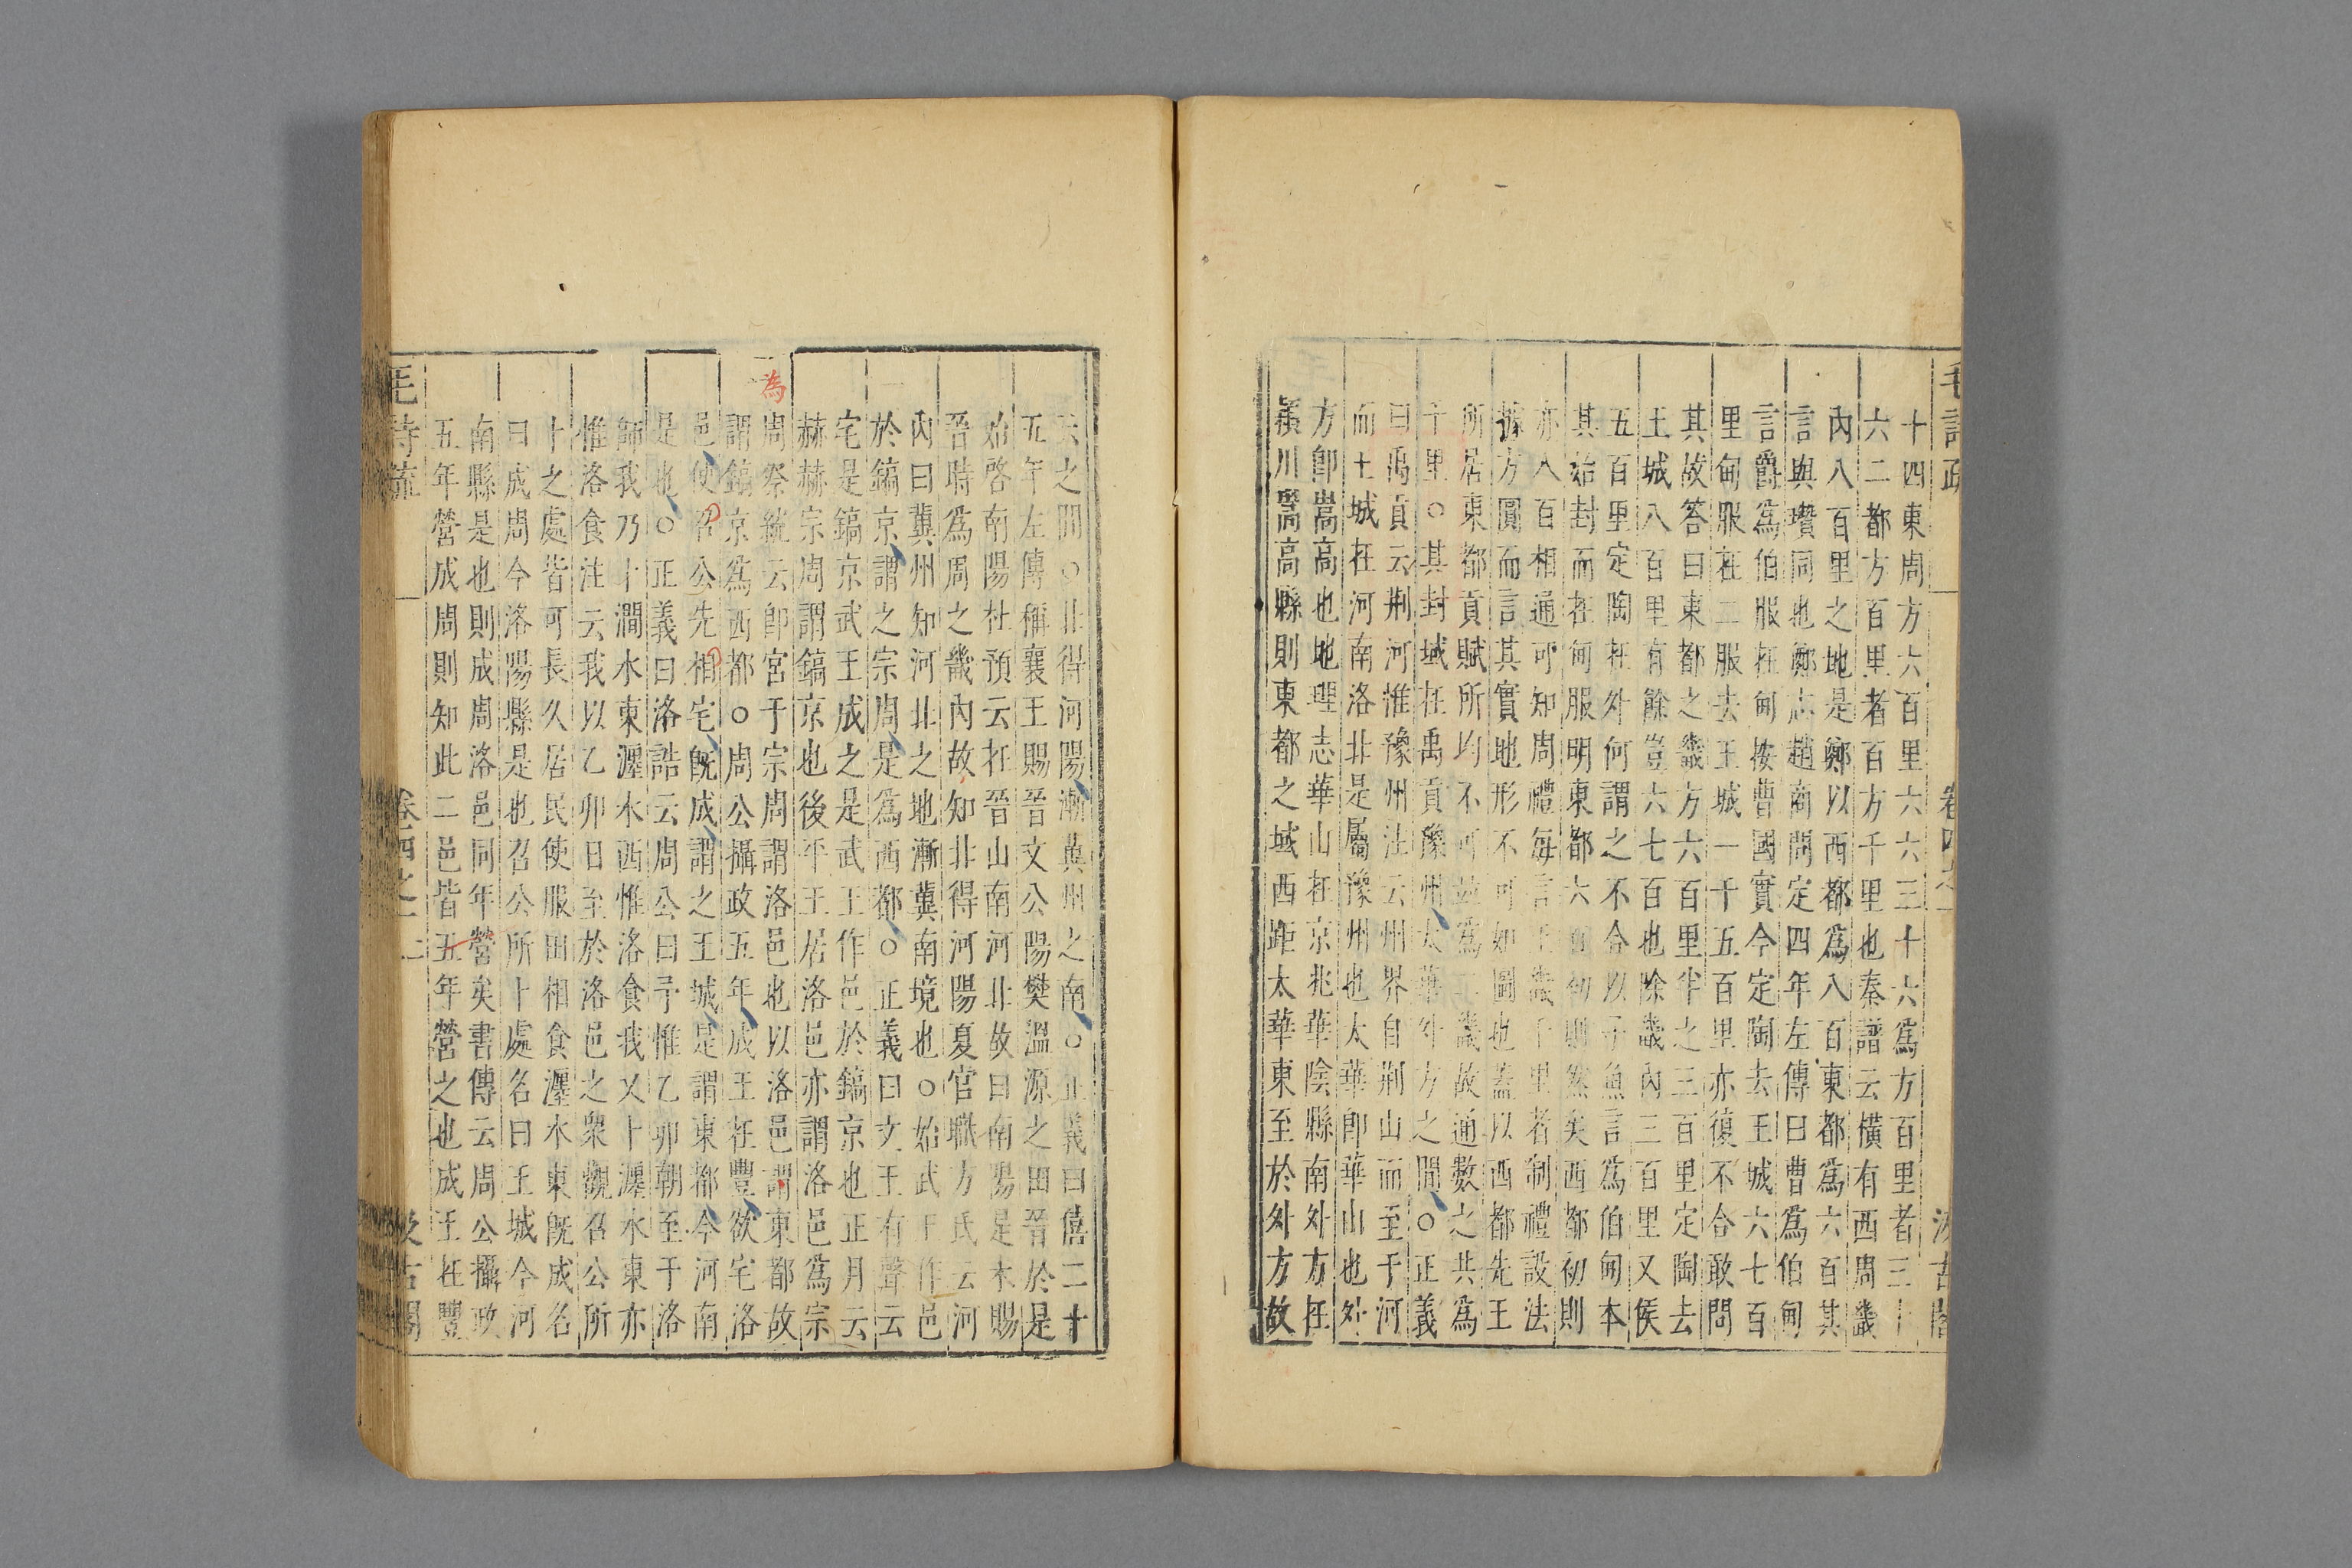 十四東周方六百里六六三十六爲方百里者三十
六二都方百里者百方千里也秦譜云橫有西周畿
內八百里之地是鄭以西都爲八百東都爲六百其
言與瓚同也鄭志趙商問定四年左傳曰曹爲伯甸
言爵爲伯服在甸按曹國實今定陶去王城六七百
里甸服在二服去王城一千五百里亦復不合敢問
其故答曰東都之畿方六百里半之三百里定陶去
王城八百里有餘豈六七百也除畿內三百里又侯
五百里定陶在外何謂之不合以子魚言爲伯甸本
其始封而在甸服明東都六百初則然矣西都初則
亦八百相通可知周禮每言王畿千里者制禮設法
據方圓而言其實地形不可如圖也蓋以西都先王
所居東都貢賦所均不可并爲二畿故通數之共爲
千里○其封域在禹貢豫州太華外方之間○正義
曰禹貢云荆河惟豫州注云州界自荆山而至于河
而王城在河南洛北是屬豫州也太華卽華山也外
方卽嵩高也地理志華山在京兆華陰縣南外方在
潁川嵩高縣則東都之域西距太華東至於外方故
云之間○北得河陽漸冀州之南○正義曰僖二十
五年左傳稱襄王賜晉文公陽樊溫源之田晉於是
始啓南陽杜預云在晉山南河北故曰南陽是未賜
晉時爲周之畿內故知北得河陽夏官職方氏云河
內曰冀州知河北之地漸冀南境也○始武王作邑
於鎬京謂之宗周是爲西都○正義曰文王有聲云
宅是鎬京武王成之是武王作邑於鎬京也正月云
赫赫宗周謂鎬京也後平王居洛邑亦謂洛邑爲宗
周祭統云卽宮于宗周謂洛邑也以洛邑謂東都故
謂鎬京爲西都○周公攝政五年成王在豐欲宅洛
邑使召公先相宅旣成謂之王城是謂東都今河南
是也○正義曰洛誥云周公曰予惟乙卯朝至于洛
師我乃卜澗水東瀍水西惟洛食我又卜瀍水東亦
惟洛食注云我以乙卯日至於洛邑之衆觀召公所
卜之處皆可長久居民使服田相食瀍水東旣成名
曰成周今洛陽縣是也召公所卜處名曰王城今河
南縣是也則成周洛邑同年營矣書傳云周公攝政
五年營成周則知此二邑皆五年營之也成王在豐
毛詩疏
卷四之一
二
汲古閣
爲